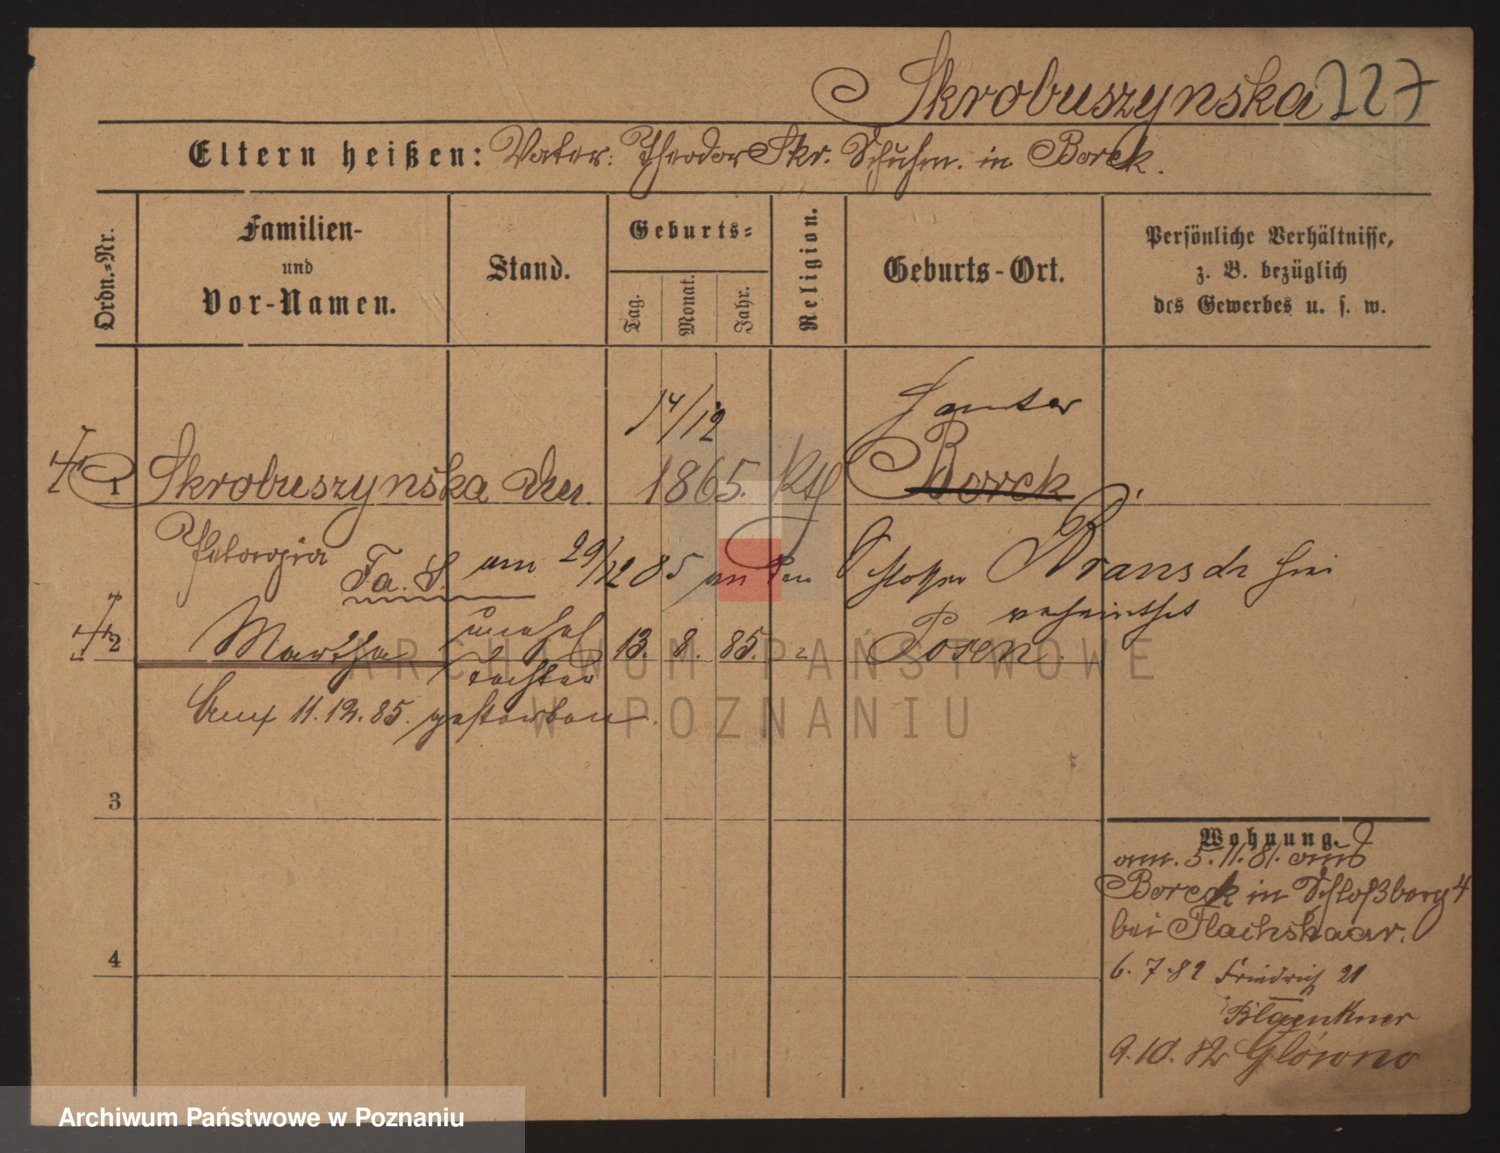 Skrobuszynska 227
Eltern heißen: Vater: Theodor Skr. Schuhm. in Borek.
Ordn.=Nr.
Familien-
und
Vor-Namen.
Stand.
Geburts=
Tag.
Monat.
Jahr.
Religion.
Geburts-Ort.
Persönliche Verhältnisse,
z. B. bezüglich
des Gewerbes u. s. w.
14/12
Samter
1 Skrobuszynska 1865. Kth Borek
am 29/12 85 an den Schlosser hier
verheirathet
2 Martha unehel 13. 8. 85. Posen
Tochter
11.12.85. gestorben.
ARCHIWUM PAŃSTWOWE
W POZNANIU
3
4
Wohnung.
am. 5.11.81. aus
Borek in Schloßberg 4
bei Flachshaar.
6. 7.82 Friedrich 21
9.10.82 Glówno
Archiwum Państwowe w Poznaniu